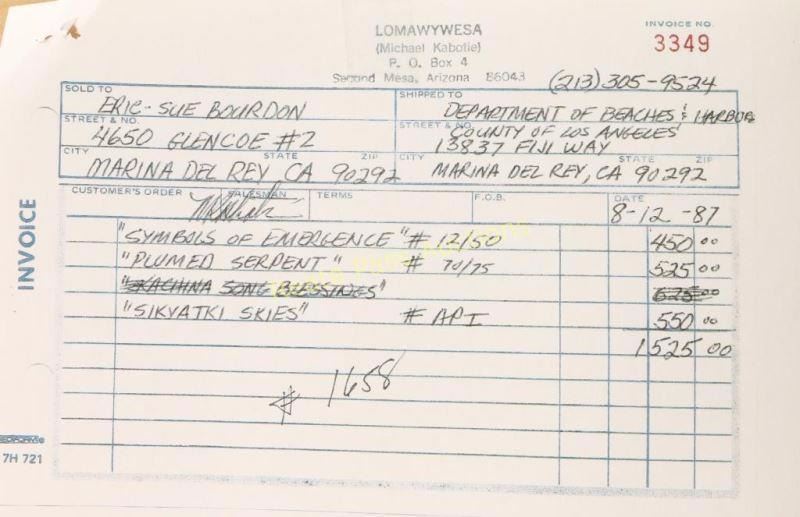 LOMAWYWESA
(Michael Kabotie)
P. O. Box 4
Second Mesa, Arizona 86043
INVOICE NO.
3349
(213) 305-9524
SOLD TO
ERIC-SUE BOURDON
STREET & NO.
4650 GLENCOE #2
CITY STATE ZIP
MARINA DEL REY, CA 90292
SHIPPED TO
DEPARTMENT OF BEACHES & HARBOR
STREET & NO.
COUNTY OF LOS ANGELES
13837 FIJI WAY
CITY STATE ZIP
MARINA DEL REY, CA 90292
CUSTOMER'S ORDER SALESMAN TERMS F.O.B. DATE
8-12-87
"SYMBOLS OF EMERGENCE" # 12/50 450 00
"PLUMED SERPENT" # 70/75 525 00
"KACHINA SONG BLESSINGS" 625 00
"SIKYATKI SKIES" # API 550 00
1525 00
# 1658
INVOICE
REDIFORM
7H 721